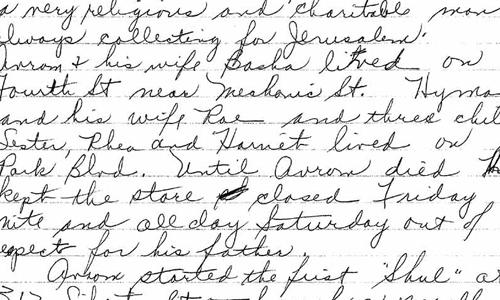 a very religious and charitable man
always collecting for Jerusalem.
Avrom & his wife Basha lived on
Fourth St near Mechanic St. Hyma
and his wife Rae and three chil
Sester, Rhea and Harriet lived on
Park Blvd. Until Avrom died H
kept the store closed Friday
nite and all day Saturday out of
espect for his father.
Avrom started the first "Shul" a
St